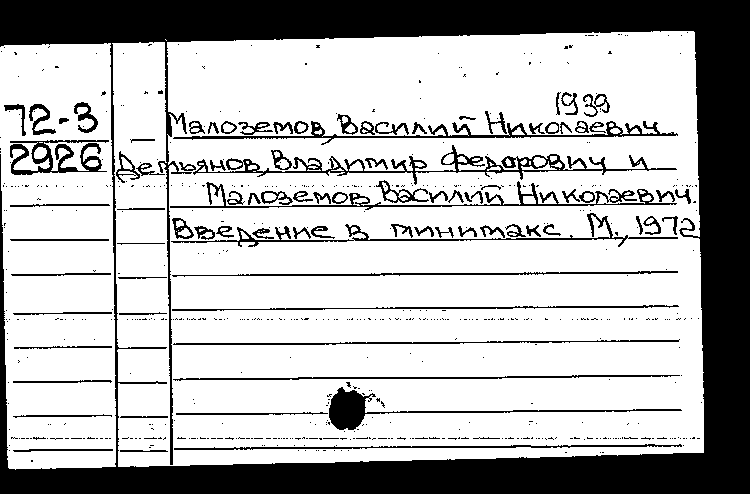 1939
72-3 Малоземов, Василий Николаевич
2926 Демьянов, Владимир Федорович и
Малоземов, Василий Николаевич.
Введение в минимакс. М., 1972